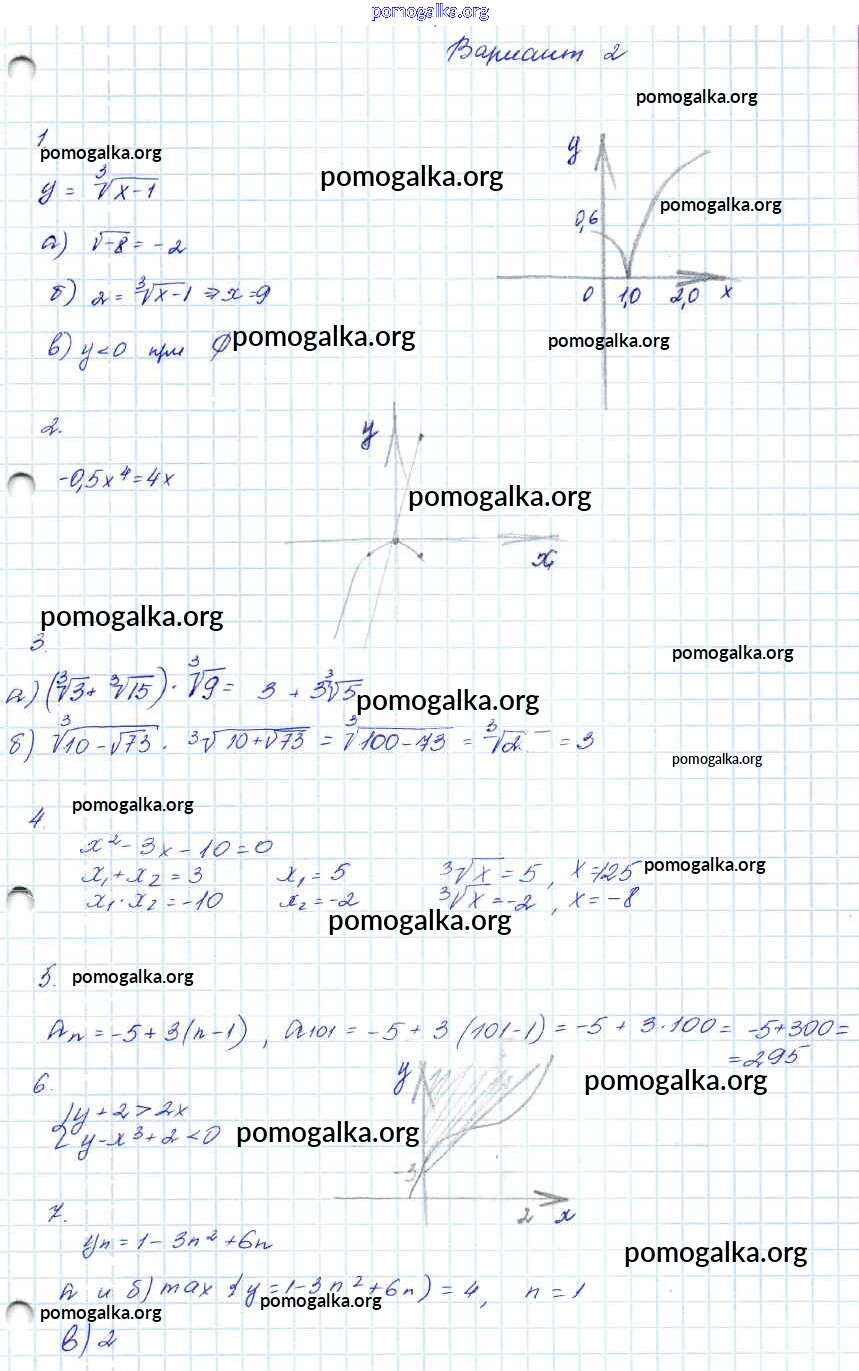 pomogalka.org
Вариант 2
pomogalka.org
1.
pomogalka.org
y = ∛(x-1)
pomogalka.org
y
0,6
pomogalka.org
а) √-8 = -2
б) 2 = ∛(x-1) ⇒ x = 9
0 1,0 2,0 x
в) y<0 при ∅
pomogalka.org
pomogalka.org
2.
y
-0,5x⁴ = 4x
pomogalka.org
x
pomogalka.org
3.
pomogalka.org
а) (∛3 + ∛15) · ∛9 = 3 + 3∛5
pomogalka.org
б) ∛(10-√73) · ∛(10+√73) = ∛(100-73) = ∛2 = 3
pomogalka.org
4.
pomogalka.org
x² - 3x - 10 = 0
x₁ + x₂ = 3 x₁ = 5 ∛x = 5, x = 125
pomogalka.org
x₁ · x₂ = -10 x₂ = -2 ∛x = -2, x = -8
pomogalka.org
5.
pomogalka.org
aₙ = -5 + 3(n-1), a₁₀₁ = -5 + 3(101-1) = -5 + 3·100 = -5+300 =
= 295
6.
y
pomogalka.org
{ y + 2 > 2x
y - x³ + 2 < 0
pomogalka.org
-3
2 x
7.
yn = 1 - 3n² + 6n
pomogalka.org
а и б) max {y = 1-3n²+6n) = 4, n = 1
pomogalka.org
pomogalka.org
в) 2